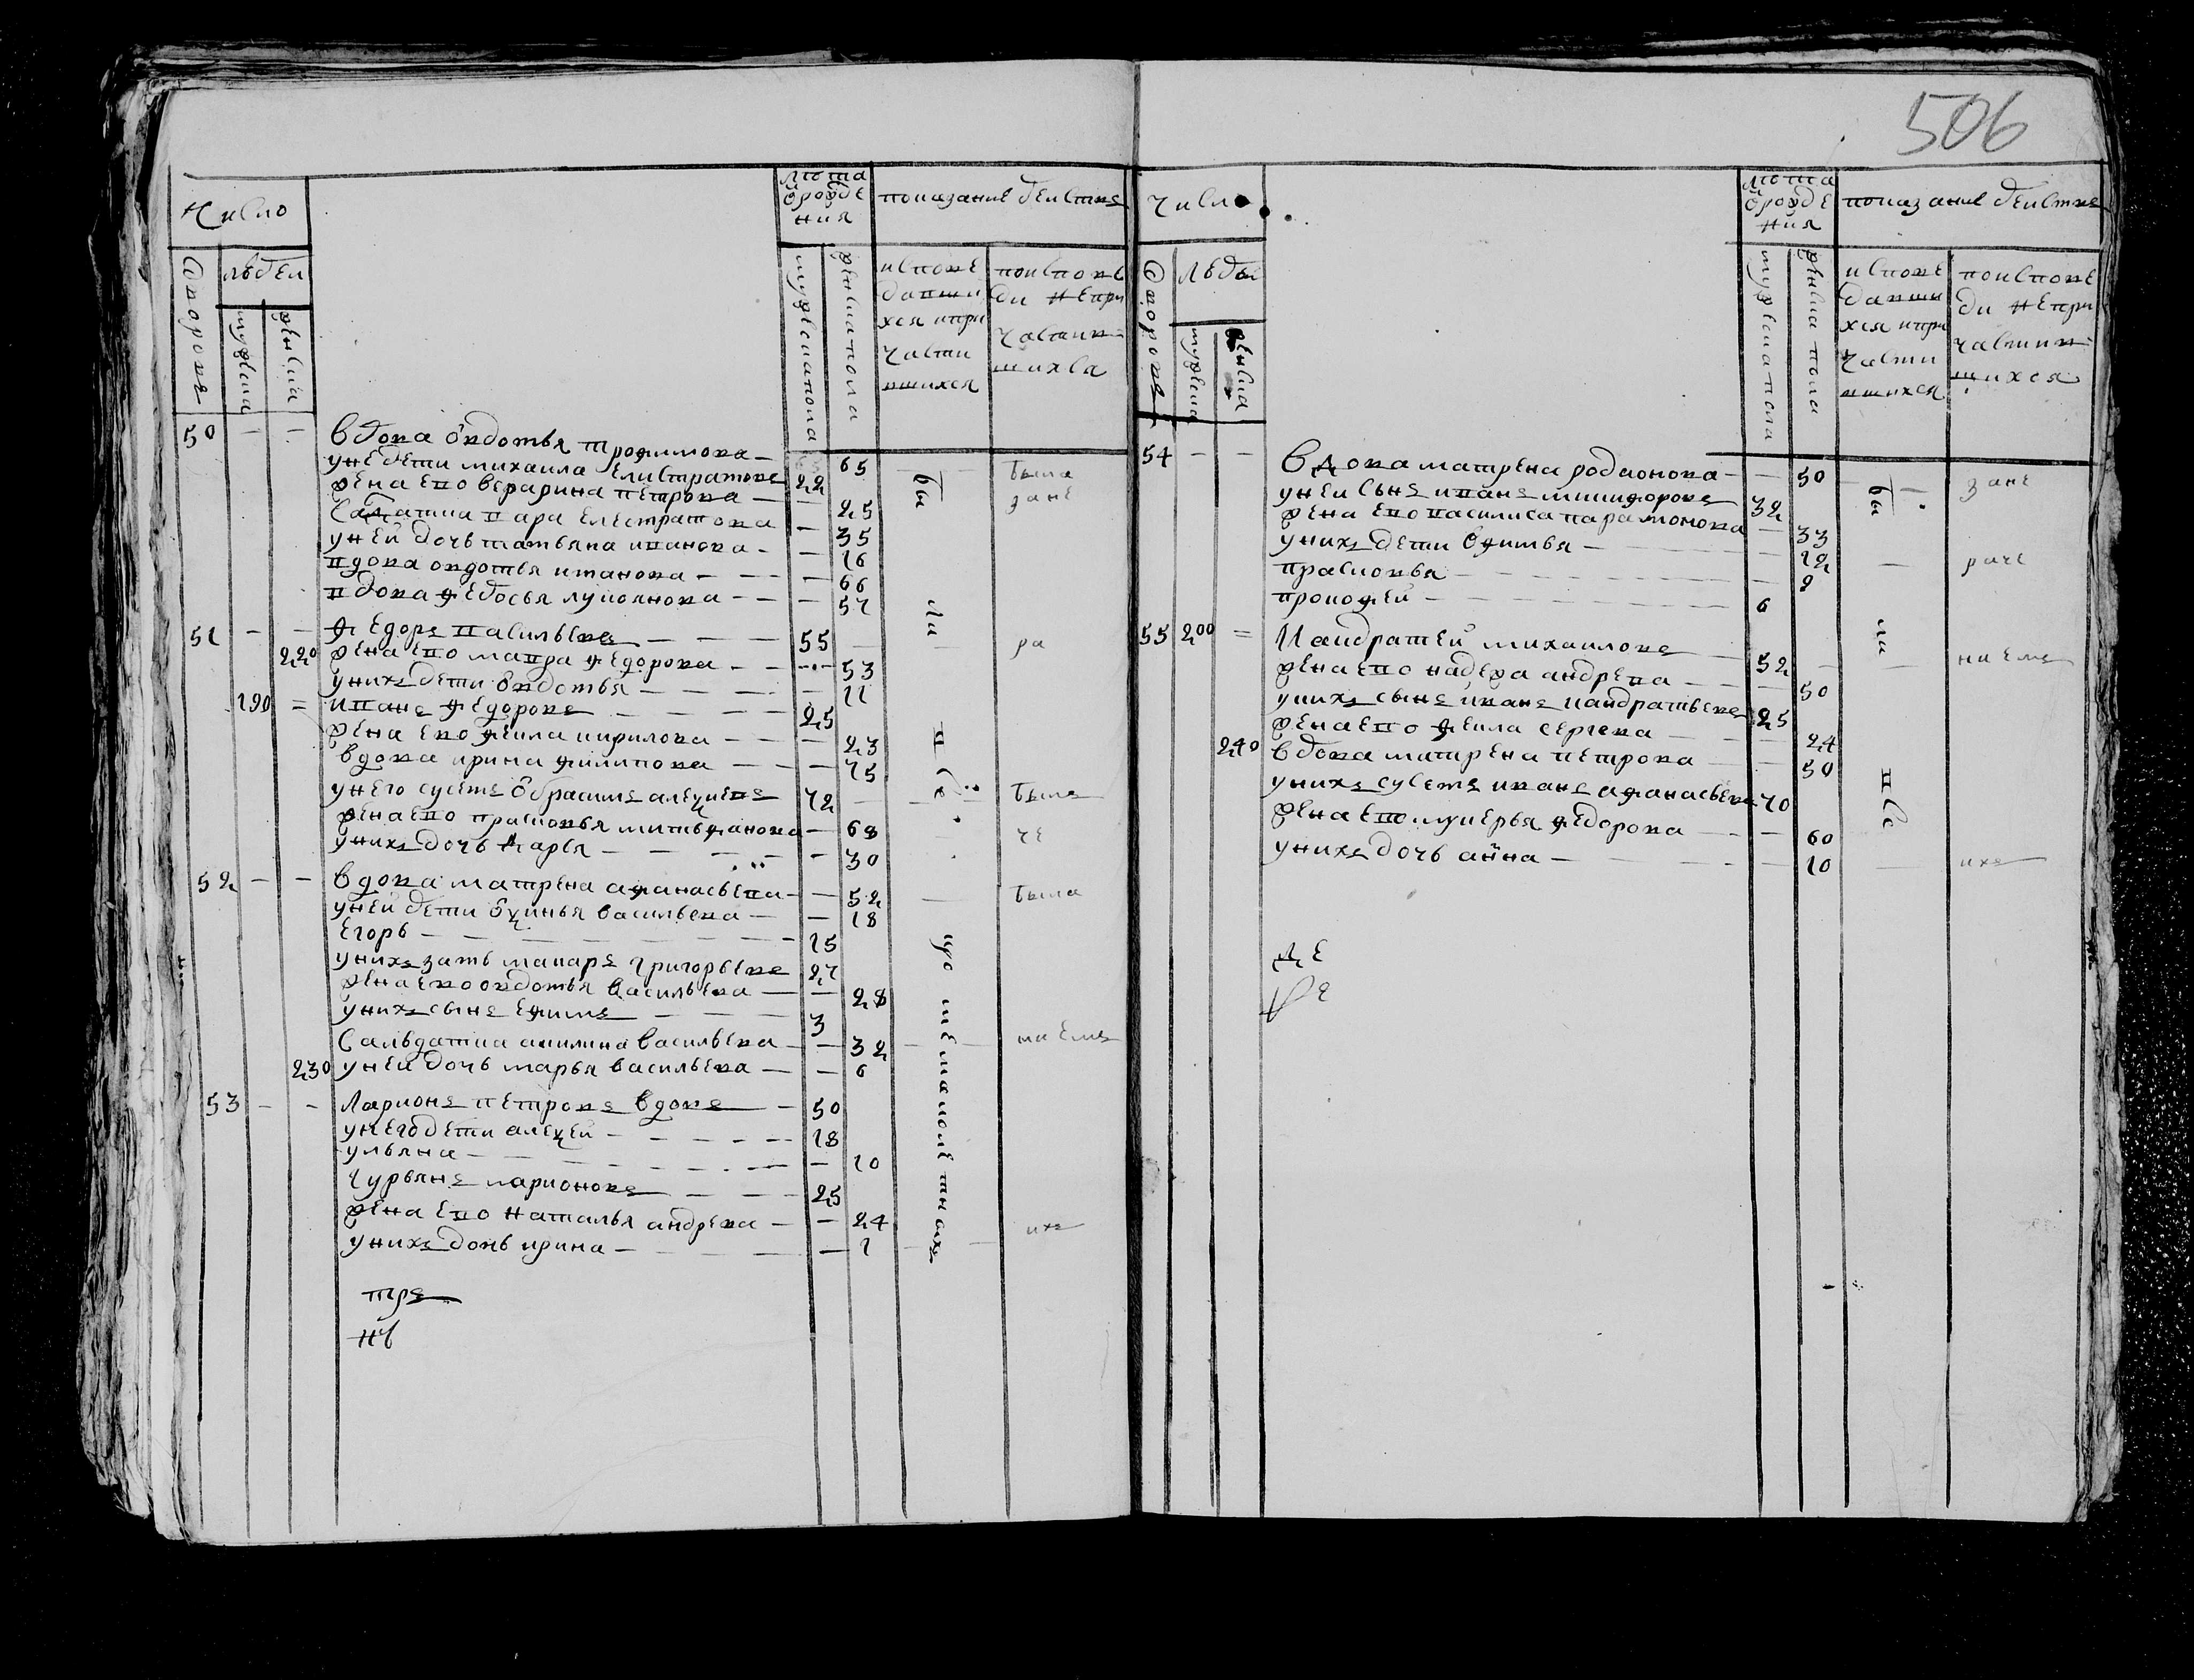 506
число
лѣта
ѿ рожде
ния
показание действъ
дворовъ
людеи
мужеска
женска
мужеска пола
женска пола
исповѣ
давши
хся и при
части
вшихся
по испове
ди не при
частив
шихся
50 — — вдова овдотья трофимова — 65 была
у неѣ дети михаила елистратовъ 22 зане
жена ево катарина петрова — — 25
салдатка вара елестратова — 35
у ней дочь татьяна иванова — — 16
вдова овдотья иванова — — — 66
вдова федосья лукоянова — — — 57
51 — — федоръ васильевъ — — — 55 ра
220 жена ево мавра федорова — — 53
у нихъ дети овдотья — — — — 11
190 = иванъ федоровъ — — — 25
жена ево фекла кирилова — — — 23
вдова ирина филипова — — — 75
у него сусетъ абрасимъ алексиевъ 72 — быше
жена ево прасковья митофанова — 68 че
у нихъ дочь марья — — — — 30
52 — — вдова матрена афанасьева — — 52 была
у ней дети аксинья васильева — — 18
егорь — — — — — — 15
у нихъ зать макаръ григорьевъ 27
жена ево овдотья васильева — — 28
у нихъ сынъ ефимъ — — — 3
салвдатка акилина васильева — — 32 ниемъ
230 у ней дочь марья васильева — — 6
53 — — ларионъ петровъ вдовъ — 50
у него дети алексей — — — — 18
ульяна — — — — — — 10
гурьянъ ларионовъ — — — 25
жена ево наталья андрева — — 24 ихъ
у нихъ дочь ирина — — — — 1
бы
ли
все
малолетныхъ
число
лѣта
ѿ рожде
ния
показание действъ
дворовъ
люди
мужеска
женска
мужеска пола
женска пола
исповѣ
давши
хся и при
части
вшихся
по испове
ди не при
частив
шихся
54 — — вдова матрена родионова — — 50 зане
у ней сынъ иванъ никифоровъ 32
жена ево василиса парамонова — 33
у нихъ дети офимья — — — 12 раче
прасковья — — — — — 8
прокофей — — — — — 6
55 200 = кандратей михаиловъ — 52 ниемъ
жена ево надежа андрева — — — 50
у нихъ сынъ иванъ кандратьевъ 25
жена ево фекла сергева — — — 24
240 вдова матрена петрова — — 50
у нихъ сусетъ иванъ афанасьевъ 70
жена ево лукерья федорова — — — 60
у нихъ дочь анна — — — — 10 ихъ
бы
ли
все